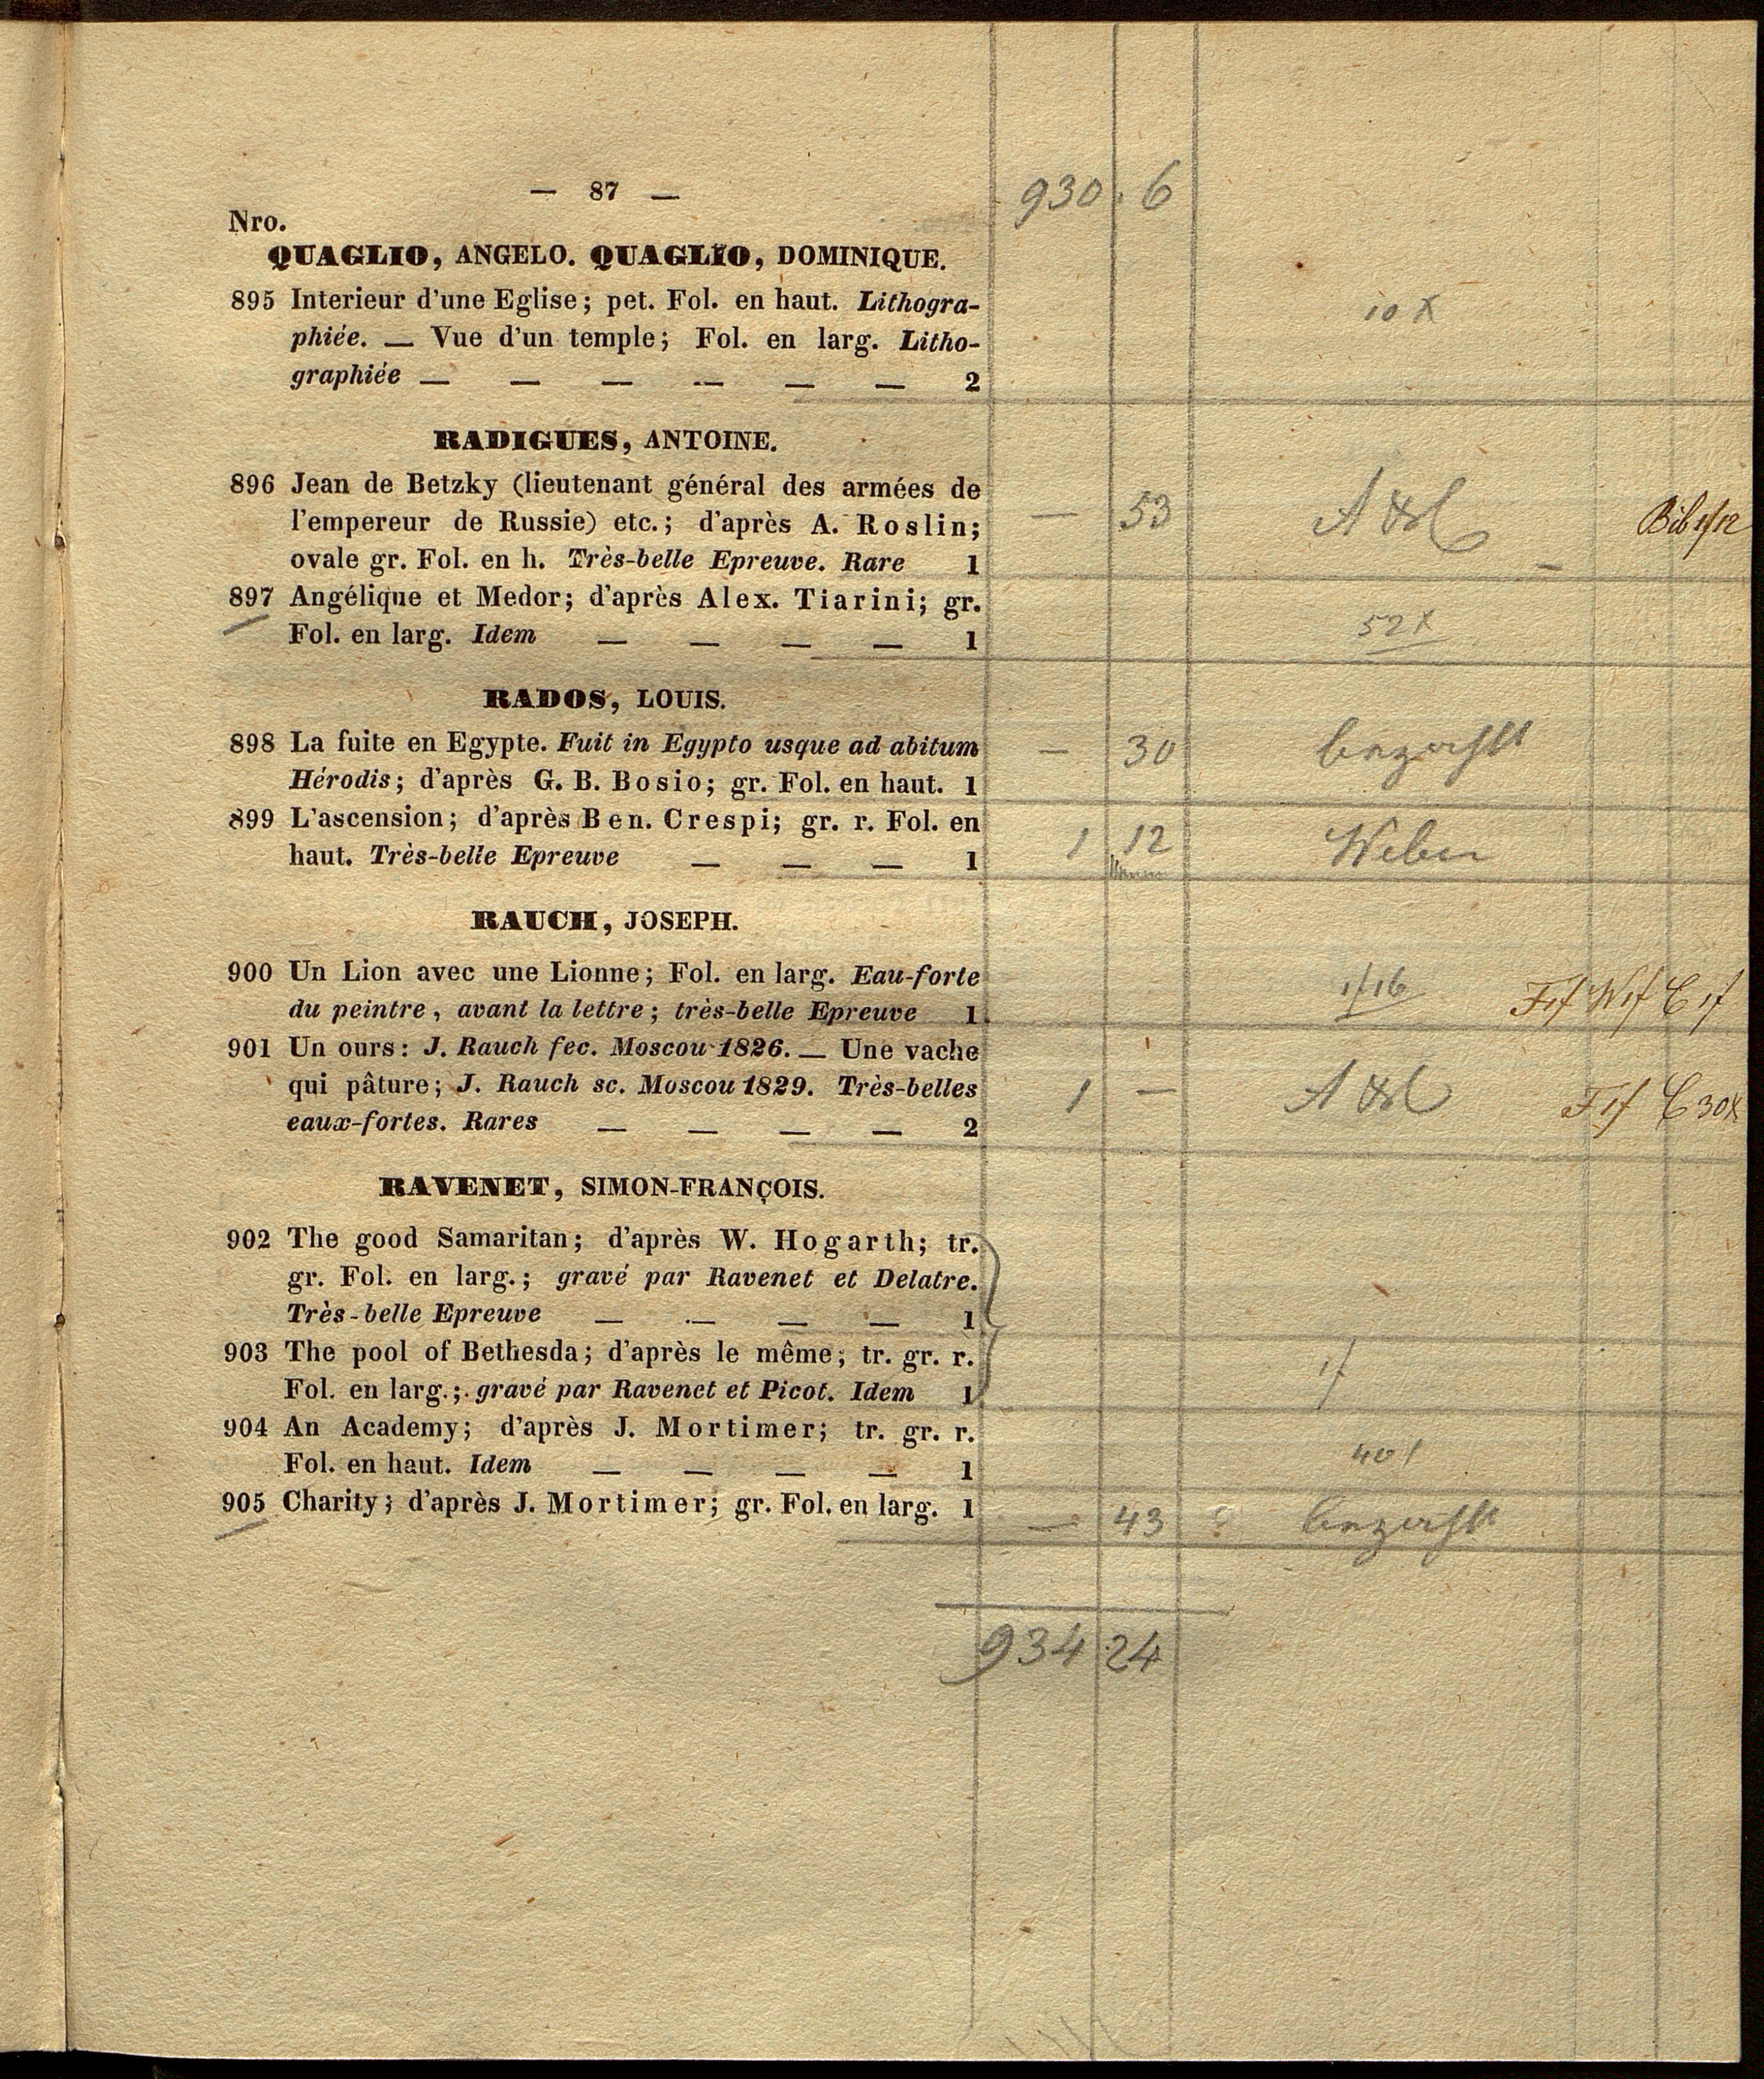 — 87 —
930 . 6
Nro.
QUAGLIO, ANGELO. QUAGLIO, DOMINIQUE.
895 Interieur d'une Eglise; pet. Fol. en haut. Lithogra-
10 X
phiée. — Vue d'un temple; Fol. en larg. Litho-
graphiée — — — — — — 2
RADIGUES, ANTOINE.
896 Jean de Betzky (lieutenant général des armées de
l'empereur de Russie) etc.; d'après A. Roslin;
— 53
ovale gr. Fol. en h. Très-belle Epreuve. Rare 1
897 Angélique et Medor; d'après Alex. Tiarini; gr.
52 X
Fol. en larg. Idem — — — — 1
RADOS, LOUIS.
898 La fuite en Egypte. Fuit in Egypto usque ad abitum
— 30 bezahlt
Hérodis; d'après G. B. Bosio; gr. Fol. en haut. 1
899 L'ascension; d'après Ben. Crespi; gr. r. Fol. en
1 12 Weber
haut. Très-belle Epreuve — — — 1
RAUCH, JOSEPH.
900 Un Lion avec une Lionne; Fol. en larg. Eau-forte
1f16 F1f W1f C1f
du peintre, avant la lettre; très-belle Epreuve 1
901 Un ours: J. Rauch fec. Moscou 1826. — Une vache
qui pâture; J. Rauch sc. Moscou 1829. Très-belles
1 — F1f C30X
eaux-fortes. Rares — — — — 2
RAVENET, SIMON-FRANÇOIS.
902 The good Samaritan; d'après W. Hogarth; tr.
gr. Fol. en larg.; gravé par Ravenet et Delatre.
Très-belle Epreuve — — — — 1
903 The pool of Bethesda; d'après le même; tr. gr. r.
1f
Fol. en larg.; gravé par Ravenet et Picot. Idem 1
904 An Academy; d'après J. Mortimer; tr. gr. r.
Fol. en haut. Idem — — — — 1
905 Charity; d'après J. Mortimer; gr. Fol. en larg. 1
— 43 bezahlt
934 24